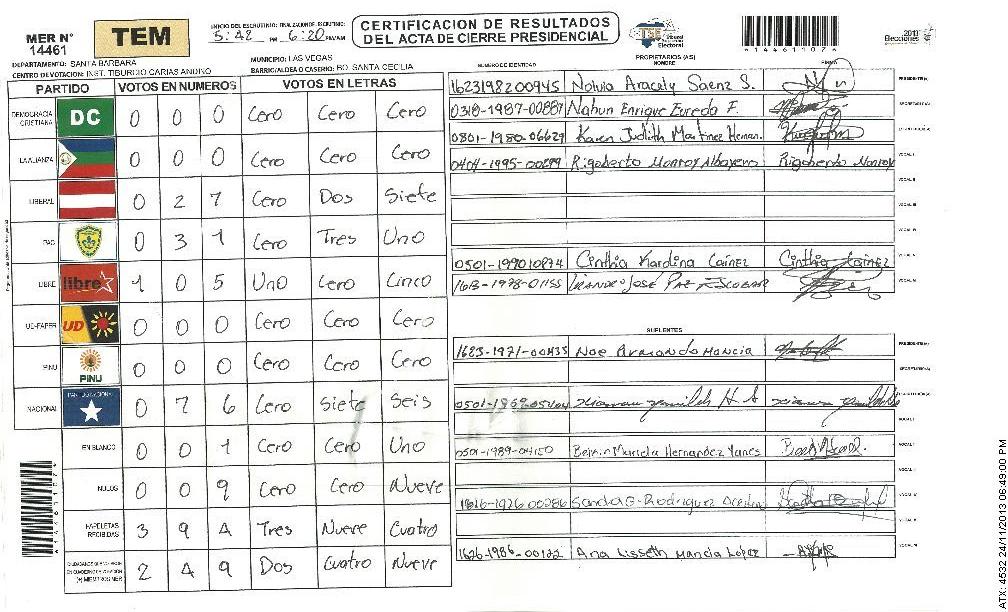 MER N° 14461
TEM
INICIO DEL ESCRUTINIO: FINALIZACION DE ESCRUTINIO:
5:42 PM 6:20 PM/AM
CERTIFICACION DE RESULTADOS
DEL ACTA DE CIERRE PRESIDENCIAL
TSE Tribunal Supremo Electoral
1446110?2
Elecciones 2013
DEPARTAMENTO: SANTA BARBARA
MUNICIPIO: LAS VEGAS
CENTRO DE VOTACION: INST. TIBURCIO CARIAS ANDINO
BARRIO/ALDEA O CASERIO: BO. SANTA CECILIA
PARTIDO VOTOS EN NUMEROS VOTOS EN LETRAS
DEMOCRACIA CRISTIANA DC 0 0 0 Cero Cero Cero
LA ALIANZA 0 0 0 Cero Cero Cero
LIBERAL 0 2 7 Cero Dos Siete
PAC 0 3 1 Cero Tres Uno
LIBRE libre 1 0 5 Uno Cero Cinco
UD-FAPER UD 0 0 0 Cero Cero Cero
PINU PINU 0 0 0 Cero Cero Cero
NACIONAL 0 7 6 Cero Siete Seis
EN BLANCO 0 0 1 Cero Cero Uno
NULOS 0 0 9 Cero Cero Nueve
PAPELETAS RECIBIDAS 3 9 4 Tres Nueve Cuatro
(+) MIEMBROS MER 2 4 9 Dos Cuatro Nueve
PROPIETARIOS (AS)
NUMERO DE IDENTIDAD NOMBRE FIRMA
1623198200945 Nolvia Aracely Saenz S. PRESIDENTE(A)
0318-1987-00887 Nahun Enrique Eureda F. SECRETARIO(A)
0801-1980-06629 Karen Judith Martinez Hernan.
0404-1995-00299 Rigoberto Monroy Rigoberto Monroy VOCAL I
VOCAL II
VOCAL III
VOCAL IV
0501-199010874 Cinthia Karolina Caínez Cinthia Cainez VOCAL V
1613-1978-01155 José Paz Escobar VOCAL VI
SUPLENTES
1623-1971-00433 Noe Armando Mancia PRESIDENTE(A)
SECRETARIO(A)
VOCAL I
0501-1989-04150 Hernandez VOCAL II
1626-1926-00286 Sandra G. Rodriguez
1626-1986-00122 Ana Lisseth Mancia López
ATX: 4532 24/11/2013 06:49:00 PM